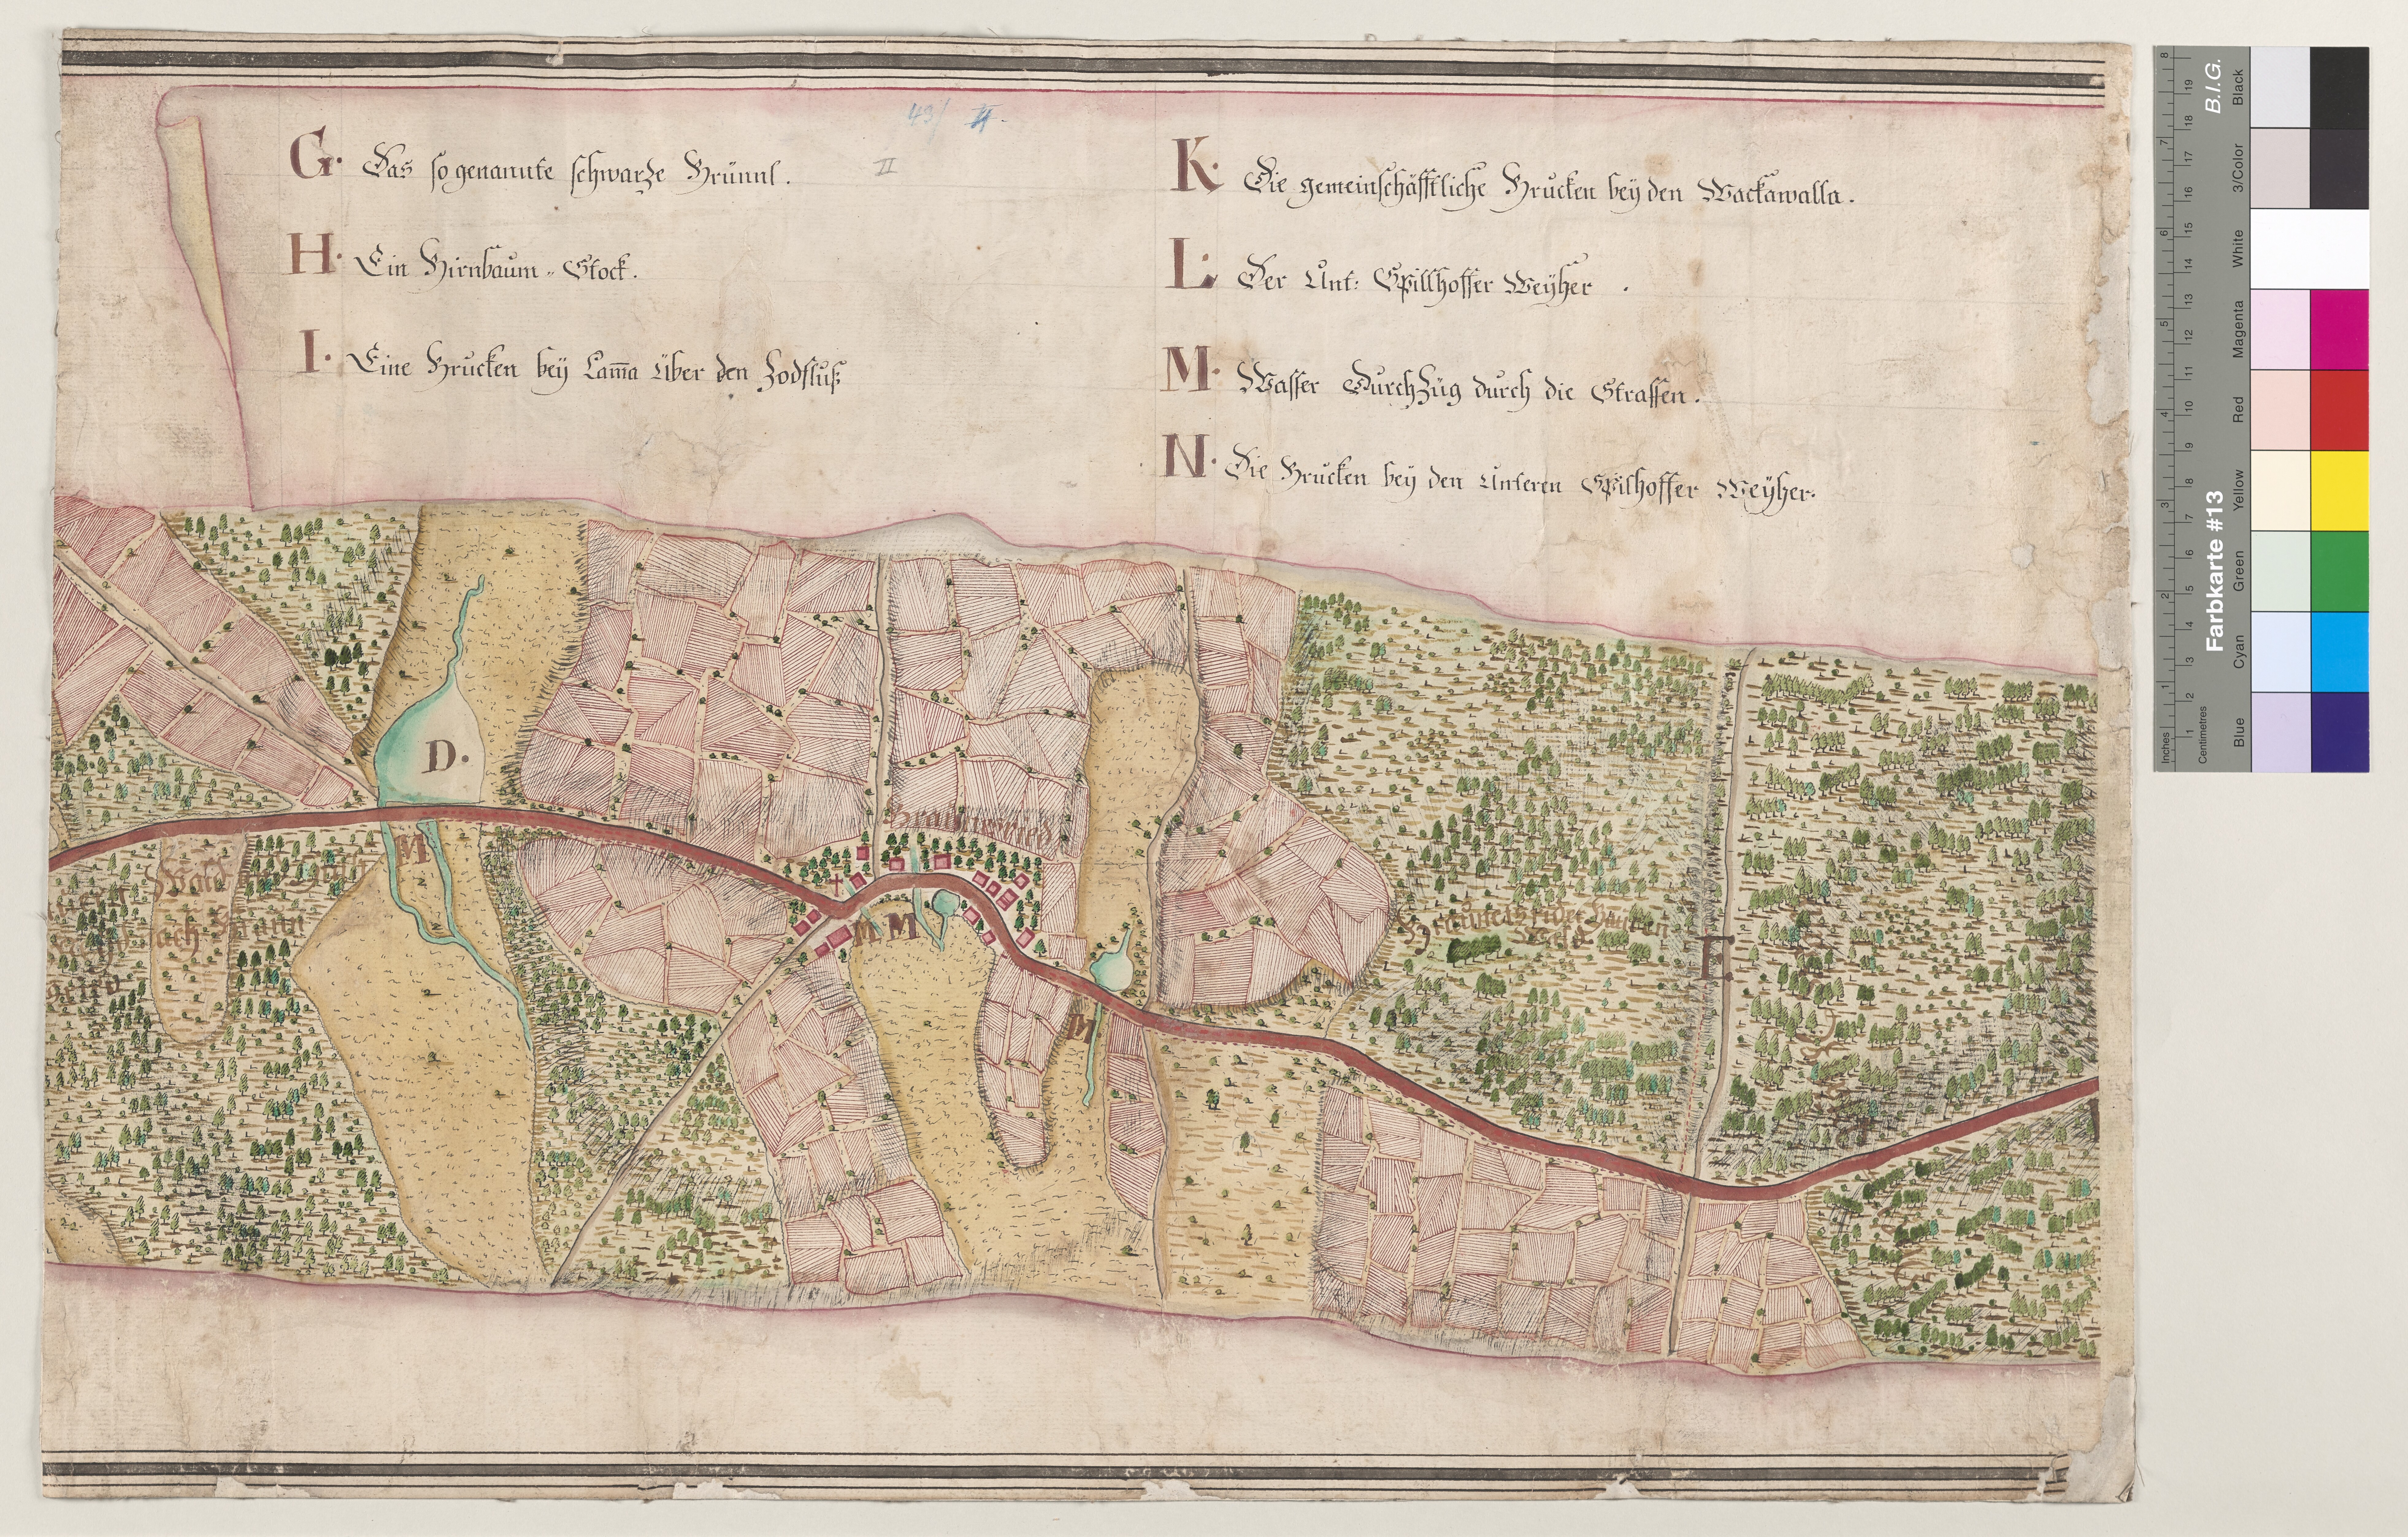 43/ II.
II
G. Das so genannte schwarze Brünnl.
H. Ein Birnbaum-Stock.
I. Eine Brucken bey Lam̅a über den Zodfluß
K. Die gemeinschäfftliche Brucken bey den Wackawalla.
L. Der Unt: Spillhoffer Weyher.
M. Wasser DurchZüg durch die Strassen.
N. Die Brucken bey den Unteren Spilhoffer Weyher.
D.
M
Wald
nach
M M
M
Wald
E
B.I.G.
Farbkarte #13
Inches
Centimetres
1 2 3 4 5 6 7 8
1 2 3 4 5 6 7 8 9 10 11 12 13 14 15 16 17 18 19
Blue Cyan Green Yellow Red Magenta White 3/Color Black